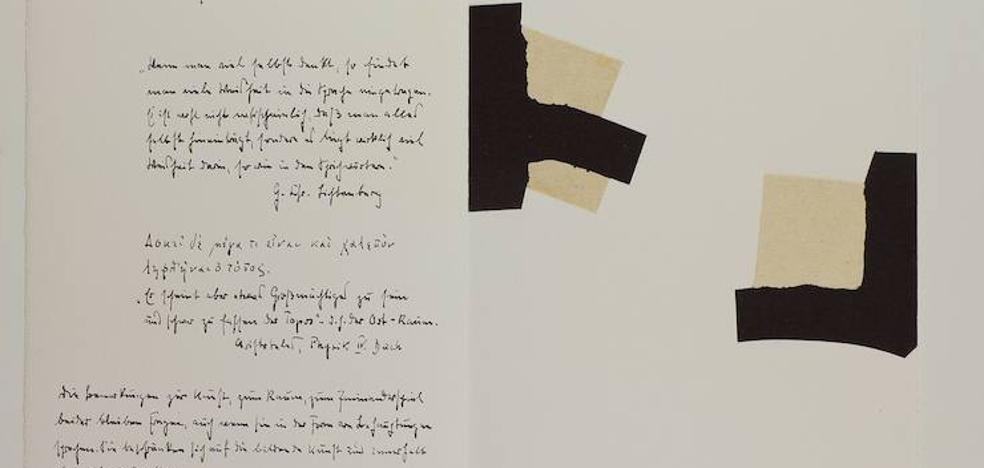 „Wenn man viel selbst denkt, so findet
man viele Weisheit in die Sprache eingetragen.
Es ist wohl nicht wahrscheinlich, daß man alles
selbst hineinträgt, sondern es liegt wirklich viel
Weisheit darin, so wie in den Sprichwörtern.“
G. Chr. Lichtenberg
Δοκεῖ δὲ μέγα τι εἶναι καὶ χαλεπὸν
ληφθῆναι ὁ τόπος.
„Es scheint aber etwas Großmächtiges zu sein
und schwer zu fassen der Topos“ - d.h. der Ort-Raum.
Aristoteles, Physik IV. Buch
Die Bemerkungen zur Kunst, zum Raum, zum Ineinanderspiel
beider bleiben Fragen, auch wenn sie in der Form von Behauptungen
sprechen. Sie beschränken sich auf die bildende Kunst und innerhalb